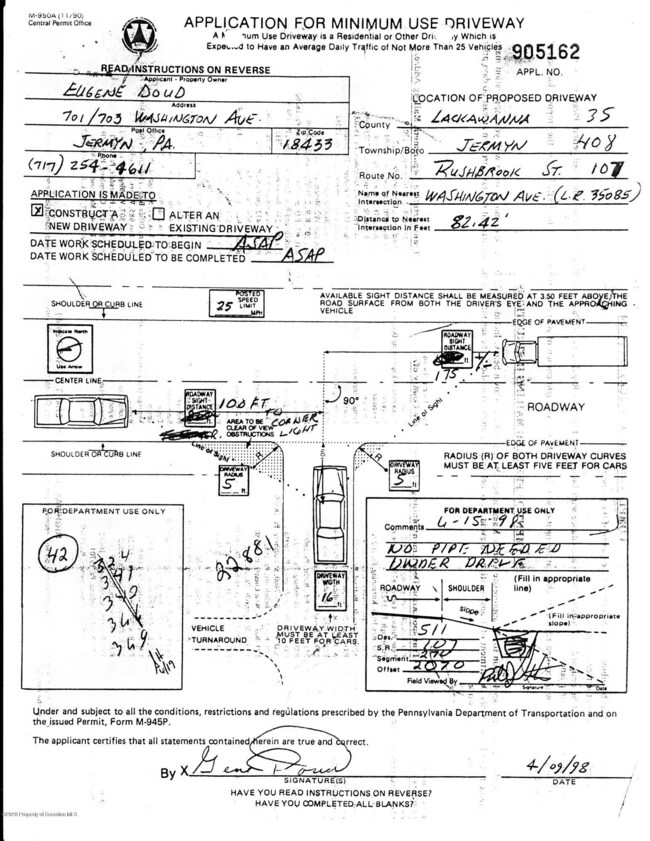 M-950A (11/90)
Central Permit Office
APPLICATION FOR MINIMUM USE DRIVEWAY
Use Driveway is a Residential or Other Which is
Expected to Have an Average Daily Traffic of Not More Than 25 Vehicles
905162
APPL. NO.
READ INSTRUCTIONS ON REVERSE
Applicant - Property Owner
EUGENE DOUD
Address
701/703 WASHINGTON AVE.
Post Office
Zip Code
JERMYN, PA.
18433
Phone
(717) 254-4611
LOCATION OF PROPOSED DRIVEWAY
County LACKAWANNA 35
Township/Boro JERMYN 408
Route No. RUSHBROOK ST. 107
Name of Nearest Intersection WASHINGTON AVE. (L.R. 35085)
Distance to Nearest Intersection In Feet 82.42'
APPLICATION IS MADE TO
X CONSTRUCT A NEW DRIVEWAY
ALTER AN EXISTING DRIVEWAY
DATE WORK SCHEDULED TO BEGIN ASAP
DATE WORK SCHEDULED TO BE COMPLETED ASAP
SHOULDER OR CURB LINE
POSTED SPEED LIMIT
25 MPH
AVAILABLE SIGHT DISTANCE SHALL BE MEASURED AT 3.50 FEET ABOVE THE
ROAD SURFACE FROM BOTH THE DRIVER'S EYE AND THE APPROACHING
VEHICLE
EDGE OF PAVEMENT
Indicate North
Use Arrow
ROADWAY SIGHT DISTANCE
ft
175 +/-
CENTER LINE
ROADWAY SIGHT DISTANCE
100 FT TO
CORNER
LIGHT
AREA TO BE
CLEAR OF VIEW
OBSTRUCTIONS
90°
Line of Sight
ROADWAY
SHOULDER OR CURB LINE
Line of Sight
R
R
EDGE OF PAVEMENT
RADIUS (R) OF BOTH DRIVEWAY CURVES
MUST BE AT LEAST FIVE FEET FOR CARS
DRIVEWAY RADIUS
5 ft
DRIVEWAY RADIUS
5 ft
FOR DEPARTMENT USE ONLY
42
349
22881
DRIVEWAY WIDTH
16 ft
VEHICLE
TURNAROUND
DRIVEWAY WIDTH
MUST BE AT LEAST
10 FEET FOR CARS.
FOR DEPARTMENT USE ONLY
Comments 4-15-98
NO PIPE NEEDED
UNDER DRIVE
ROADWAY
SHOULDER
(Fill in appropriate line)
slope
(Fill in appropriate slope)
Des. 511
S.R. 107
Segment 270
Offset 2070
Field Viewed By
Signature
Date
Under and subject to all the conditions, restrictions and regulations prescribed by the Pennsylvania Department of Transportation and on
the issued Permit, Form M-945P.
The applicant certifies that all statements contained herein are true and correct.
By X Gene Doud
SIGNATURE(S)
4/09/98
DATE
HAVE YOU READ INSTRUCTIONS ON REVERSE?
HAVE YOU COMPLETED ALL BLANKS?